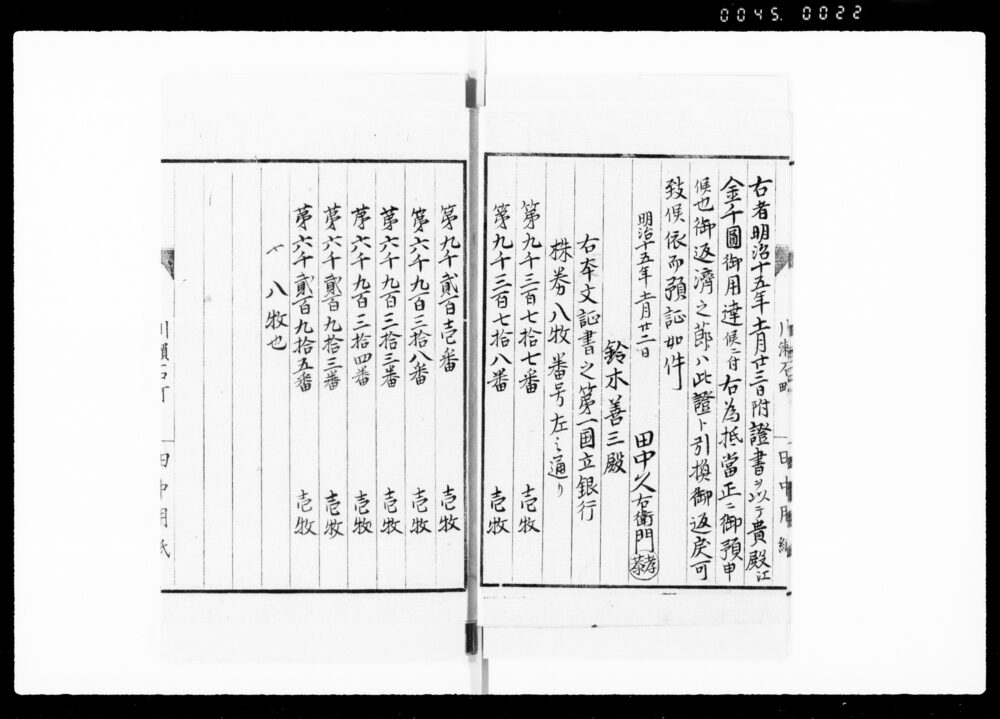 0045. 0022
右者明治十五年十一月廿二日附證書ヲ以テ貴殿江
金千圓御用達候ニ付右為抵當正ニ御預申
候也御返濟之節ハ此證ト引換御返戻可
致候依而預証如件
明治十五年十一月廿二日
田中久右衛門
鈴木善三殿
右本文証書之第一国立銀行
株券八牧番号左之通り
第九千三百七拾七番 壱牧
第九千三百七拾八番 壱牧
第九千貳百壱番 壱牧
第六千九百三拾八番 壱牧
第六千九百三拾三番 壱牧
第六千九百三拾四番 壱牧
第六千貳百九拾三番 壱牧
第六千貳百九拾五番 壱牧
〆八牧也
田中用紙